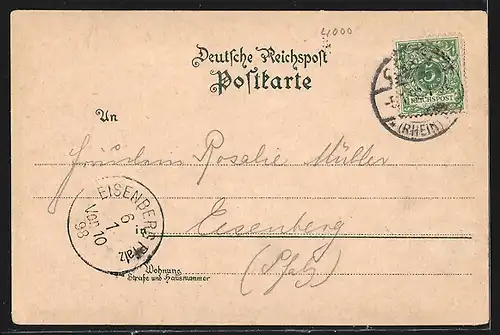 4000
Deutsche Reichspost
Postkarte
5
REICHSPOST
(RHEIN)
An
Fräulein Rosalie Müller
EISENBERG Pfalz
6
1
Vor 10
98
in
Eisenberg
(Pfalz)
Wohnung
Straße und Hausnummer